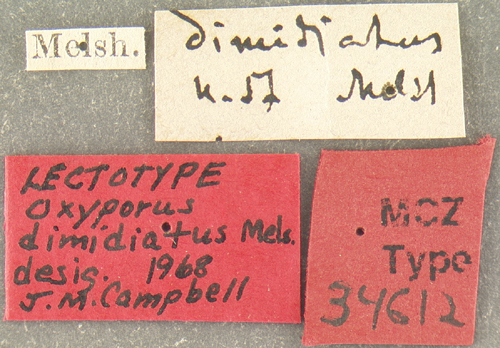 Melsh.
dimidiatus
Melsh
LECTOTYPE
Oxyporus
dimidiatus Mels.
desig. 1968
J.M. Campbell
MCZ
Type
34612